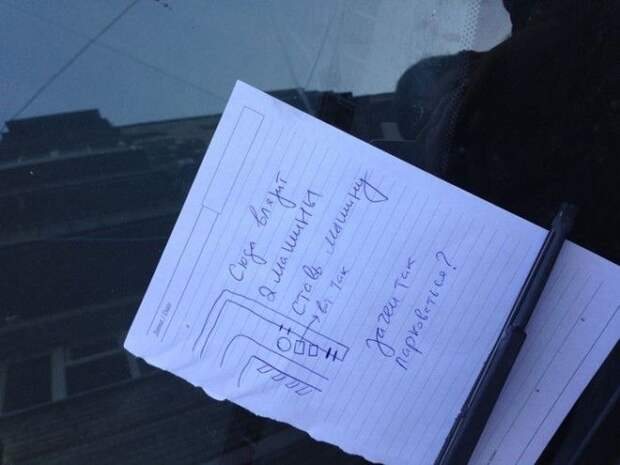 Сюда влезят
2 машины
Ставь машину
вот так
зачем так
парковаться?